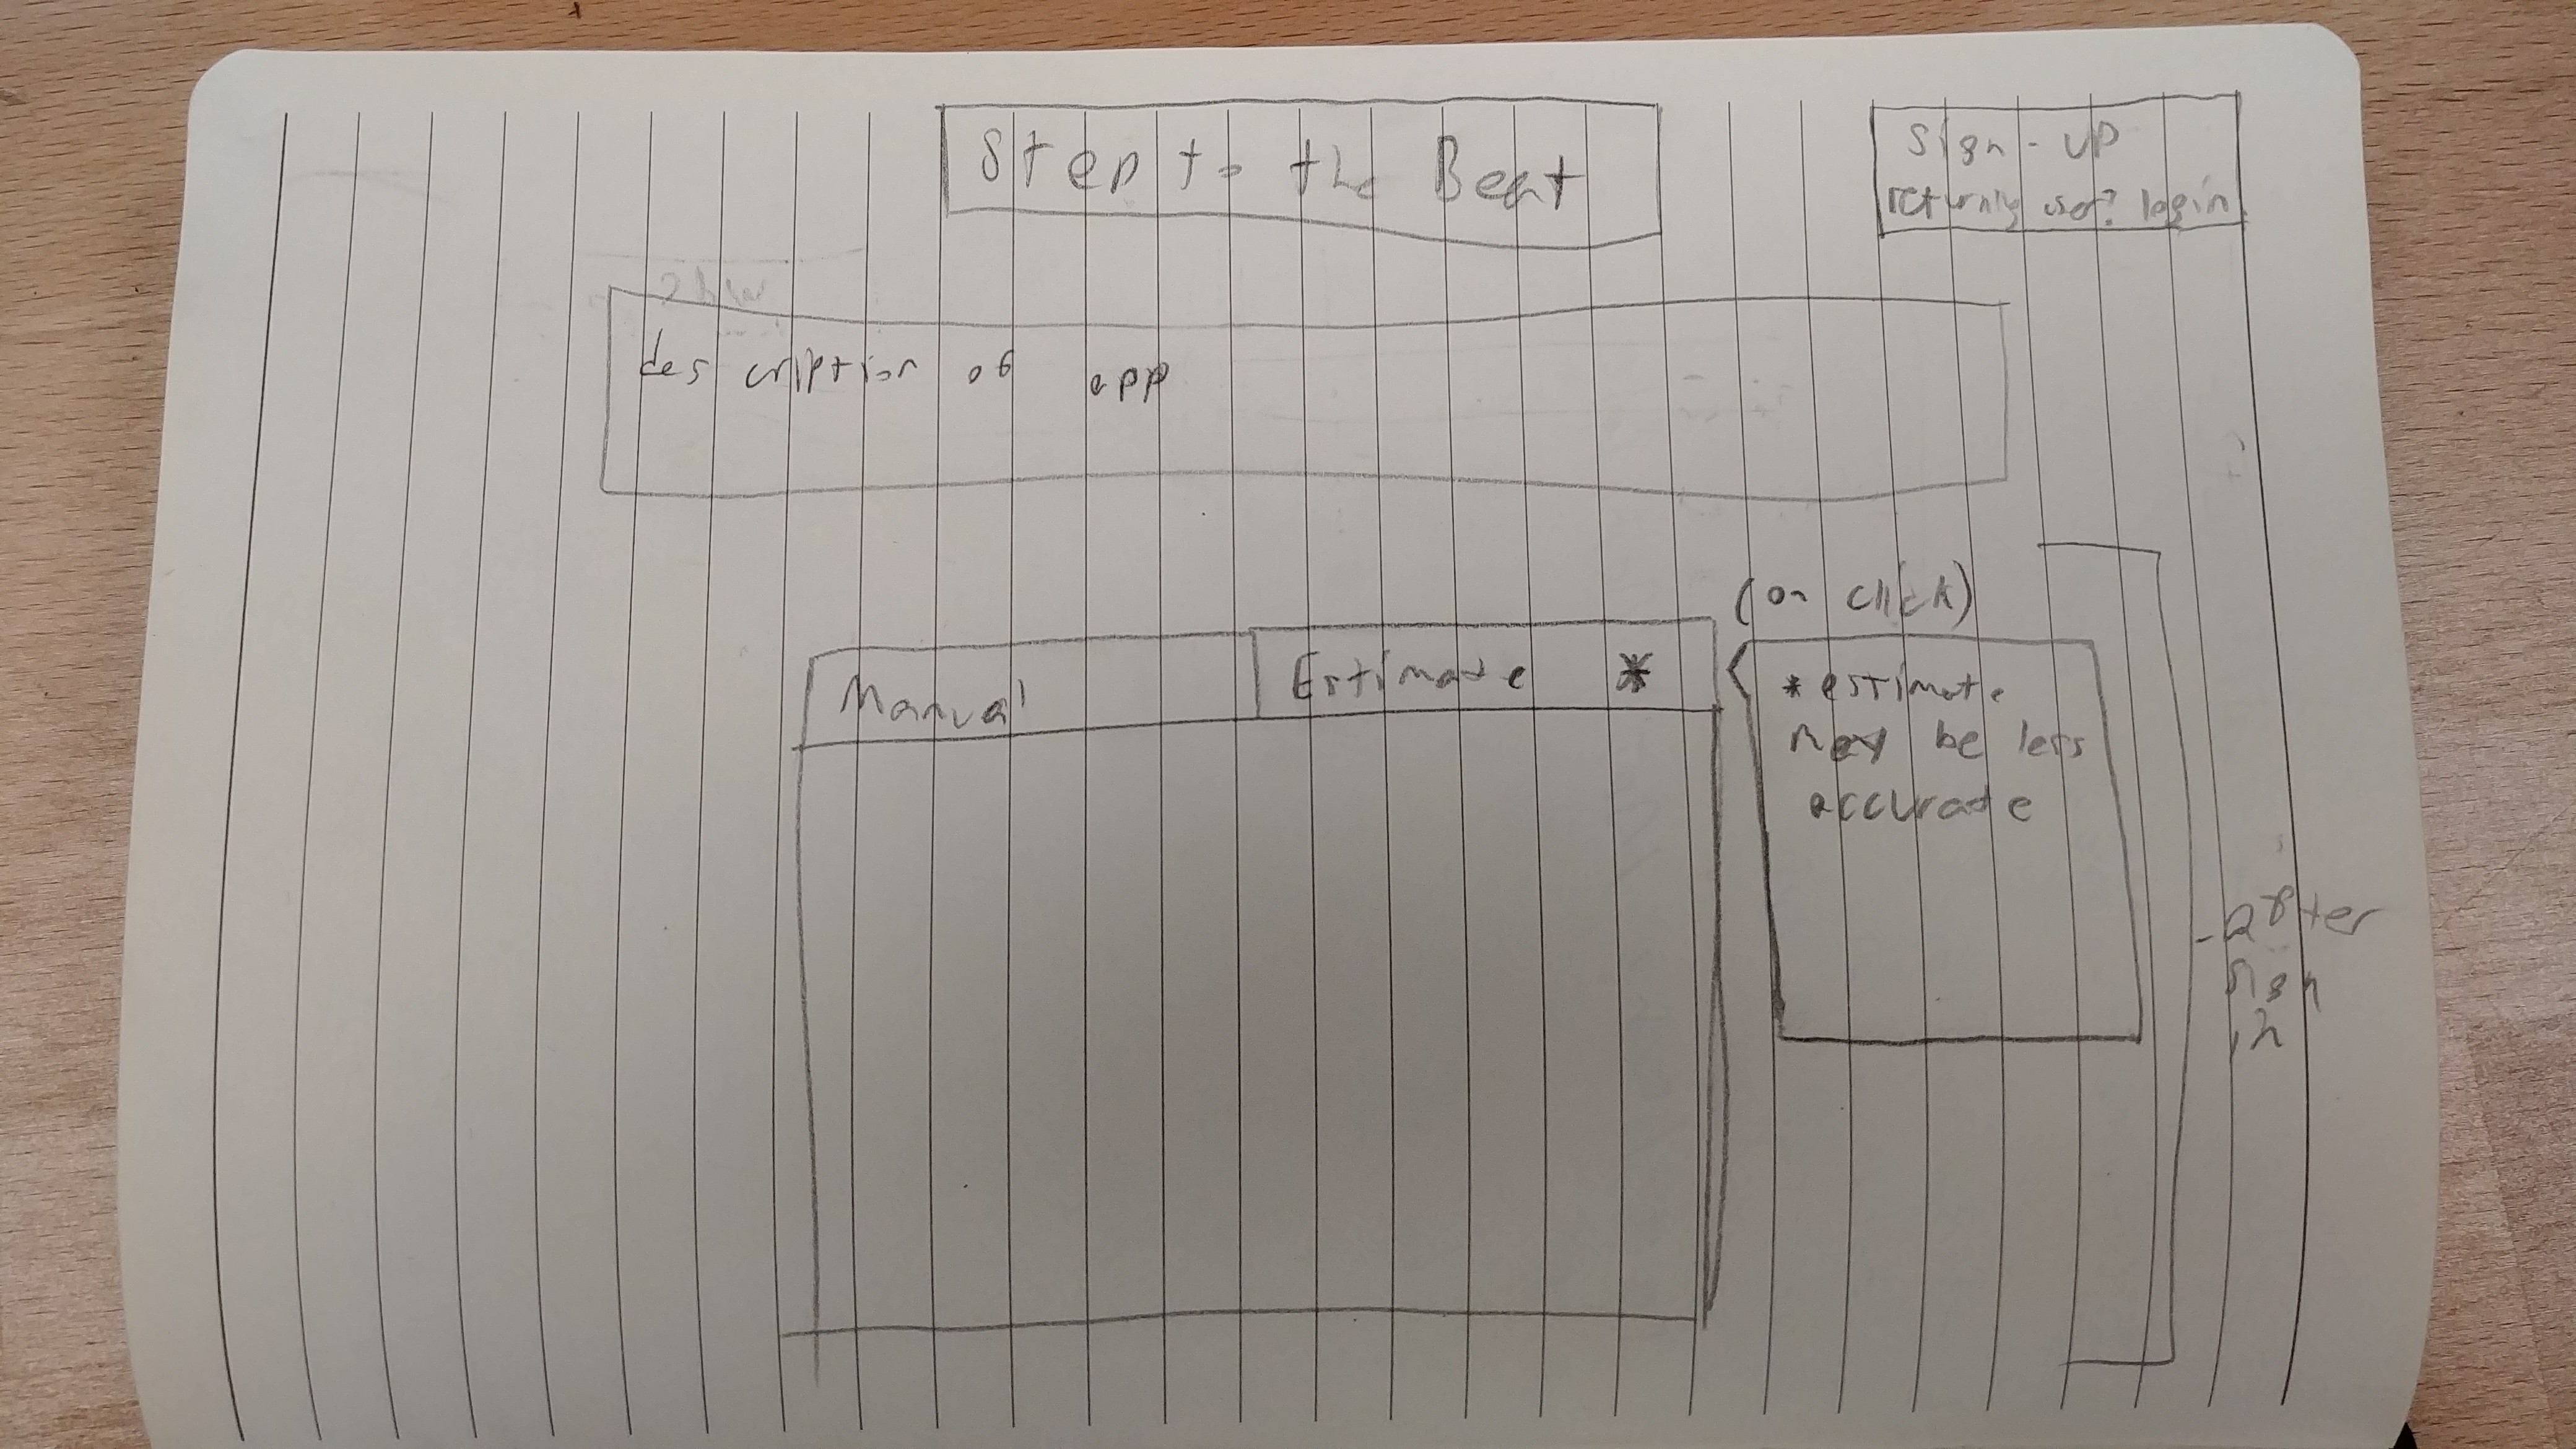 Step to the Beat
Sign-up
returning user? login
description of app
(on click)
Manual
Estimate *
* estimate
may be less
accurate
- after
sign
in